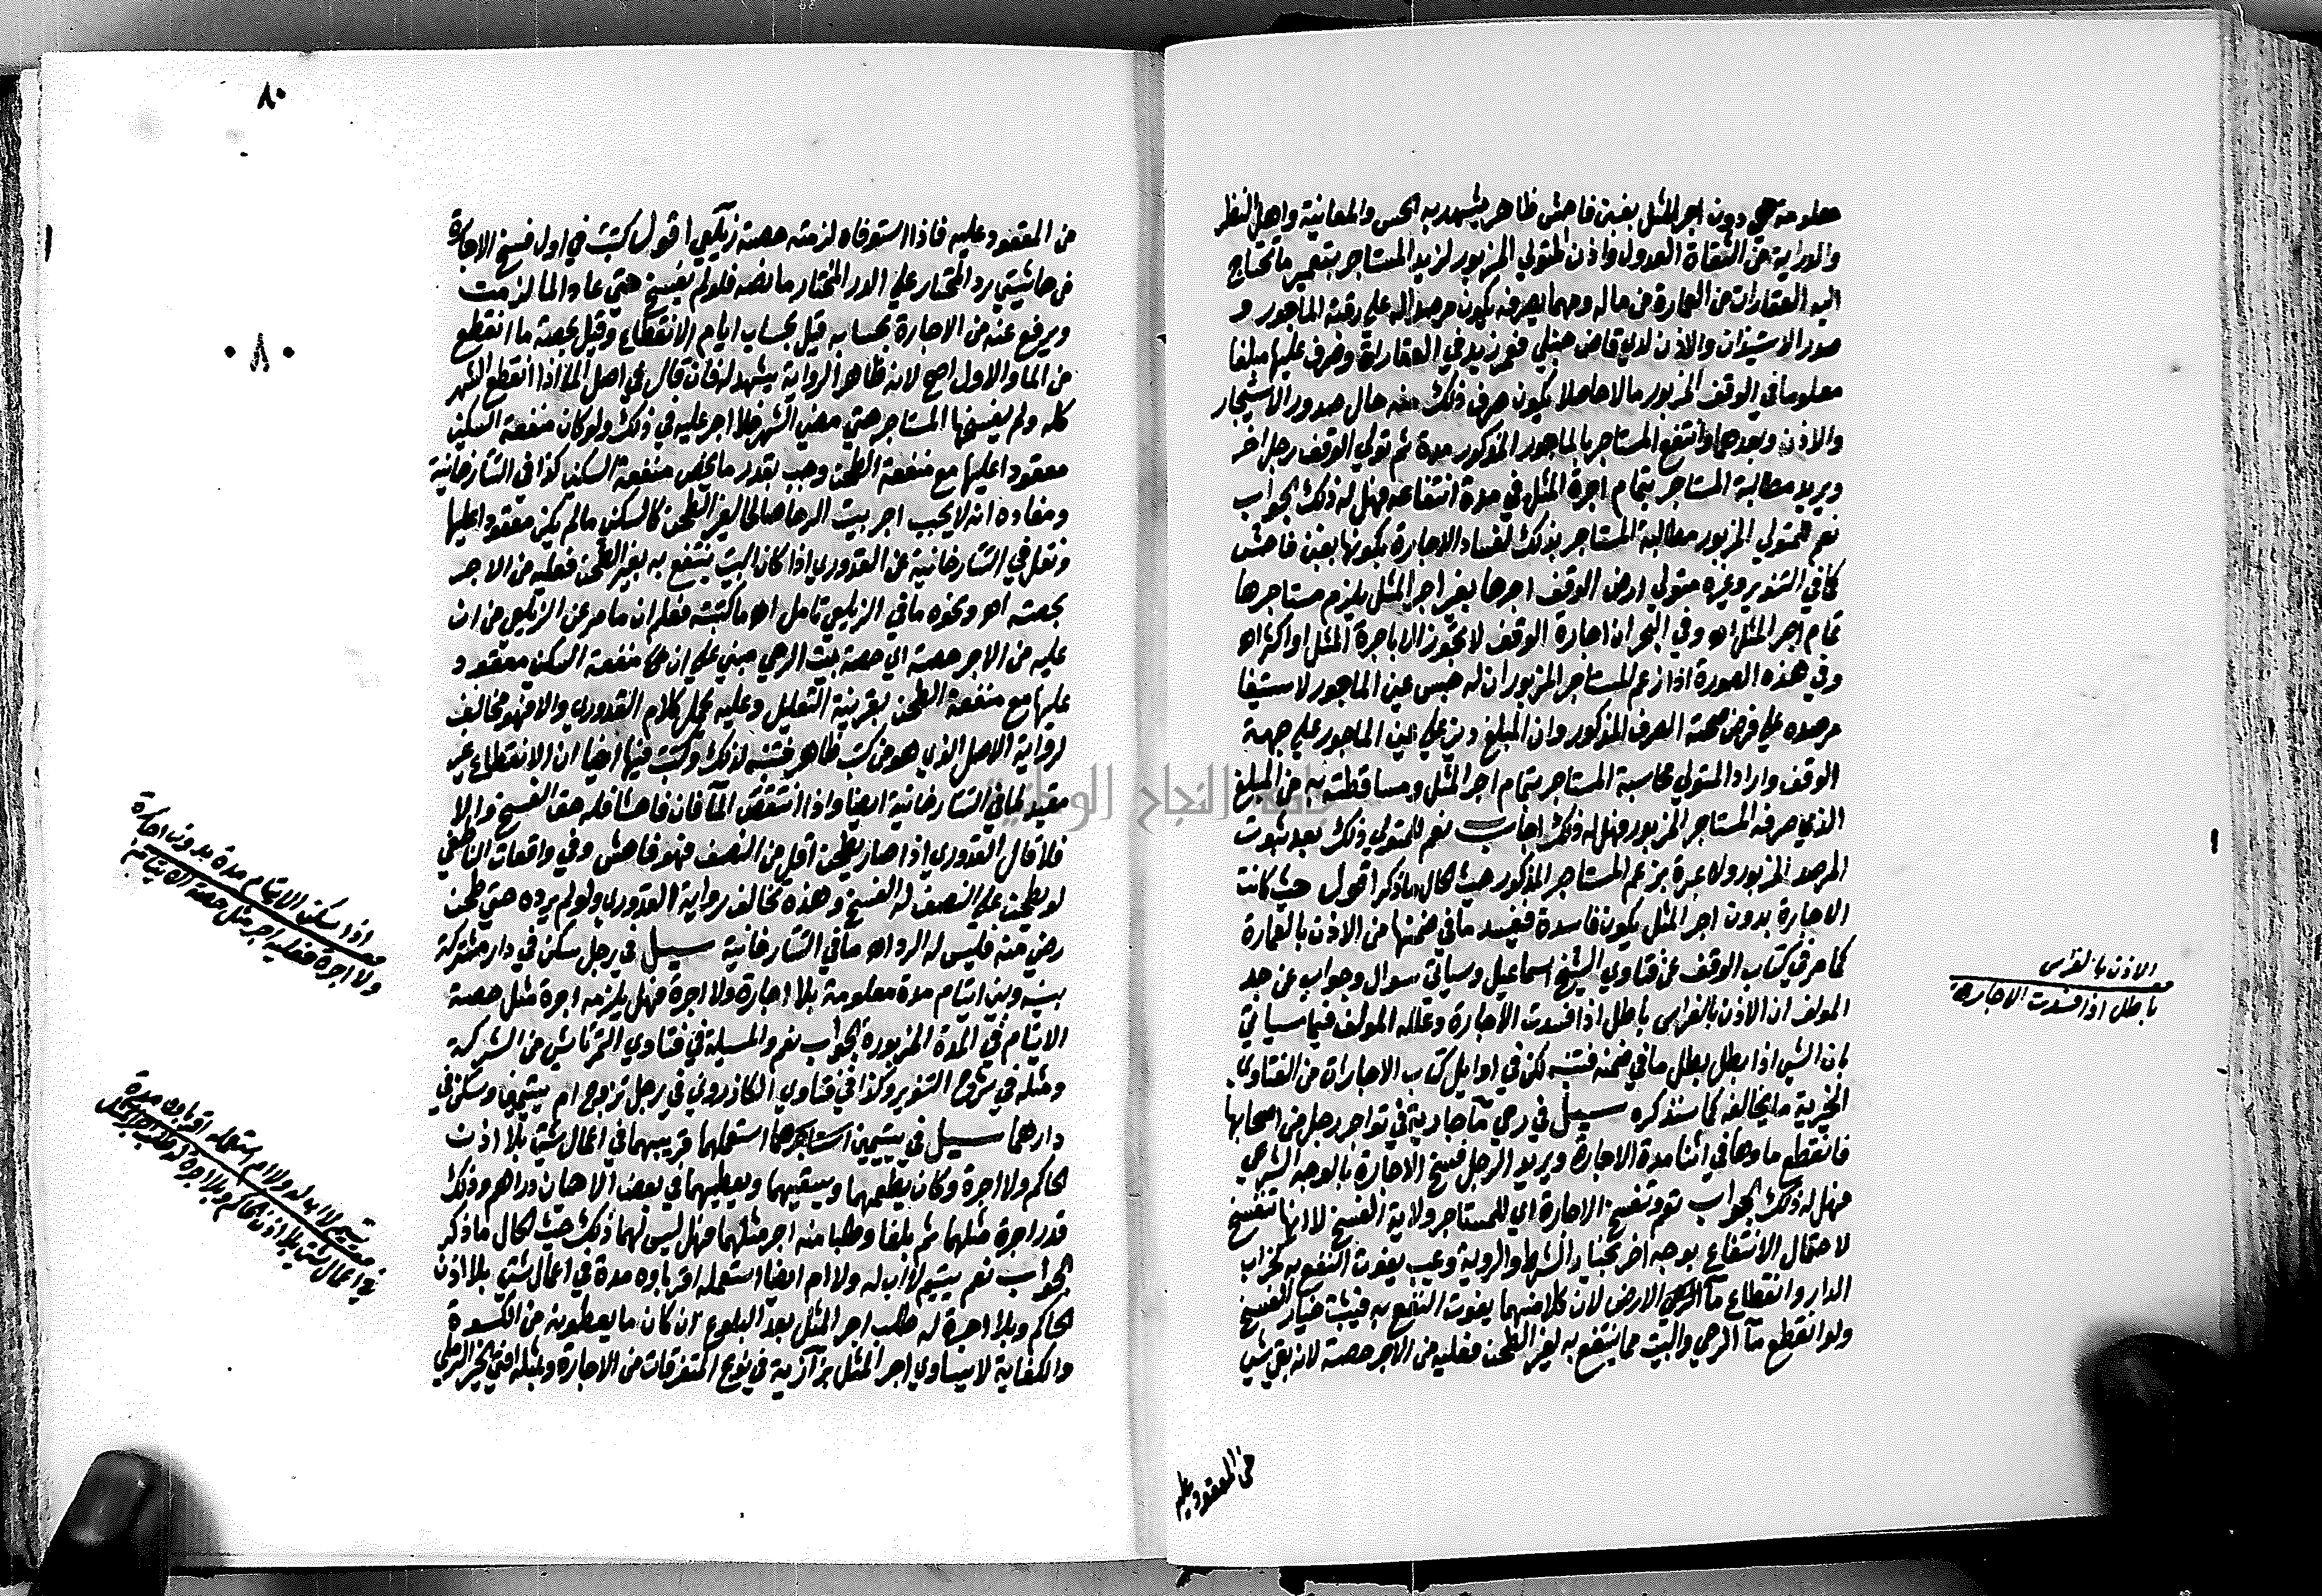 معلومة دون اجر المثل بغبن فاحش ظاهر يشهد به الحس والمعاينة واهل النظر
والدراية من الثقاة العدول واذن المتولي المزبور لزيد المستاجر بتعمير ما تحتاج
اليه العقارات من العمارة من ماله ومهما يصرفه يكون مرصدا له على رقبة الماجور و
صدر الاستيذان والاذن لدي قاض حنبلي فعمر زيد في العقارات وصرف عليها مبلغا
معلوما في الوقف المزبور مال حاصل يكون صرف ذلك منه حال صدور الاستيجار
والاذن وبعدهما وانتفع المستاجر بالماجور المذكور مدة ثم تولي الوقف رجل اخر
ويريد مطالبة المستاجر بتمام اجرة المثل في مدة انتفاعه فهل له ذلك الجواب
نعم للمتولي المزبور مطالبة المستاجر بذلك لفساد الاجارة بكونها بغبن فاحش
كما في التنوير وغيره متولي ارض الوقف اجرها بغير اجر المثل يلزم مستاجرها
تمام اجر المثل اه وفي البحر ان اجارة الوقف لا تجوز الا باجرة المثل او اكثر اه
وفي هذه الصورة اذا زعم المستاجر المزبور ان له حبس عين الماجور لاستيفا
مرصده على فرض صحة الصرف المذكور وان المبلغ دين على عين الماجور على جهة
الوقف واراد المتولي محاسبة المستاجر بتمام اجر المثل ومساقطته به من المبلغ
الذي صرفه المستاجر المزبور فهل له ذلك اجاب نعم للمتولي ذلك بعد ثبوت
المرصد المزبور ولا عبرة بزعم المستاجر المذكور حيث الحال ما ذكر اقول حيث كانت
الاجارة بدون اجر المثل يكون فاسدة فيفسد ما في ضمنها من الاذن بالعمارة
كما مر في كتاب الوقف عن فتاوي الشيخ اسماعيل وسياتي سوال وجواب عن جد
المولف ان الاذن بالغراس باطل اذا فسدت الاجارة وعلله المولف فيما سياتي
بان الشي اذا بطل بطل ما في ضمنه فتنبه لكن في اوايل كتاب الاجارات من الفتاوي
الخيرية ما يخالفه كما سنذكره سيل في رحي ما جارية في تواجر رجل من اصحابها
فانقطع ماوها في اثنا مدة الاجارة ويريد الرجل فسخ الاجارة بالوجه الشرعي
فهل له ذلك الجواب نعم وتفسخ الاجارة اي للمستاجر ولاية الفسخ لا انها تنفسخ
لاحتمال الانتفاع بوجه اخر بخيار الشرط والروية وعيب يفوت النفع به كخراب
الدار وانقطاع ما الرحي الارض لان كلا منهما يفوت النفع به فيثبت خيار الفسخ
ولو انقطع ما الرحي والبيت مما ينتفع به لغير الطحن فعليه من الاجر حصته لانه بقي شي
من المعقود عليه
الاذن بالغراس
باطل اذا فسدت الاجارة
٨٠
٨
من المعقود عليه فاذا استوفاه لزمته حصته زيلعي اقول كتبت في اول فسخ الاجارة
من حاشيتي رد المحتار على الدر المختار ما نصه فلو لم يفسخ حتي عاد الما لزمت
ويرفع عنه من الاجارة بحسابه قيل بحساب ايام الانقطاع وقيل بحصة ما انقطع
من الما والاول اصح لانه ظاهر الرواية يشهد له فان قال في اصل الما اذا انقطع الشهر
كله ولم يفسخها المستاجر حتي مضي الشهر فلا اجر عليه في ذلك ولو كان منفعة السكني
معقودا عليها مع منفعة الطحن وجب بقدر ما يخص منفعة السكني كذا في التتارخانية
ومفاده انه لا يجب اجر بيت الرحا صالحا لغير الطحن كالسكني ما لم يكن معقودا عليها
ونقل في التتارخانية عن القدوري اذا كان البيت ينتفع به بغير الطحن فعليه من الاجر
بحصته اه ونحوه ما في الزيلعي تامل اه ما كتبته فعلم ان ما مر عن الزيلعي من ان
عليه من الاجر حصة اي حصة بيت الرحي مبني على ان منفعة السكني معقود
عليها مع منفعة الطحن بقرينة التعليل وعليه يحمل كلام القدوري والا فهو مخالف
لرواية الاصل الذي هو من كتب ظاهر فتنبه لذلك وكتبت فيها ايضا ان الانقطاع غير
مقيد لما في التتارخانية ايضا واذا انتقص الما فان فاحشا فله حق الفسخ والا
فلا قال القدوري اذا صار يطحن اقل من النصف فهو فاحش وفي واقعات الناطفي
لو يطحن على النصف له الفسخ وهذه تخالف رواية القدوري ولو لم يرده حتي طحن
رضي منه فليس له الرد اه ما في التتارخانية سيل في رجل سكن في دار مشتركة
بينه وبين ايتام مدة معلومة بلا اجارة ولا اجرة فهل يلزمه اجرة مثل حصة
الايتام في المدة المزبورة الجواب نعم والمسيلة في فتاوي التمرتاشي من الشركة
ومثله في شروح التنوير وكذا في فتاوي الكازروني في رجل تزوج ام يتيمين وسكن في
دارهما سيل في يتيمين استعملهما قريبهما في اعمال شتي بلا اذن
الحاكم ولا اجرة وكان يطعمهما ويسقيهما ويعطيهما في بعض الاحيان دراهم وذلك
قدر اجرة مثلهما ثم بلغا وطلبا منه اجر مثلهما فهل ليس لهما ذلك حيث الحال ما ذكر
الجواب نعم يتيم لا اب له ولا ام ايضا استعمله اقرباوه مدة في اعمال شتي بلا اذن
الحاكم وبلا اجرة له طلب اجر المثل بعد البلوغ ان كان ما يعطونه من الكسوة
والكفاية لا يساوي اجر المثل بزازية في نوع المتفرقات من الاجارة وبمثله افتي الخير الرملي
اذا سكن الايتام مدة بدون اجارة
ولا اجرة فعليه اجر مثل حصة الايتام
يتيم لا اب له ولا ام استعمله اقرباوه مدة
في اعمال شتي بلا اذن الحاكم وبلا اجرة له طلب اجر المثل
جامعة النجاح الوطنية